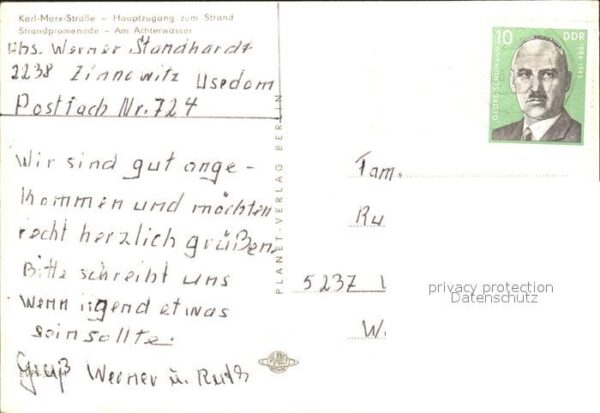 Karl-Marx-Straße – Hauptzugang zum Strand
Strandpromenade – Am Achterwasser
Abs. Werner Standhardt
2238 Zinnowitz Usedom
Postfach Nr. 724
Wir sind gut ange-
kommen und möchten
recht herzlich grüßen.
Bitte schreibt uns
wenn irgend etwas
sein sollte.
Gruß Werner u. Ruth
PLANET-VERLAG BERLIN
PLANET
10 DDR
GEORG SCHUMANN
1886-1945
Fam.
Ru
5237
W.
privacy protection
Datenschutz